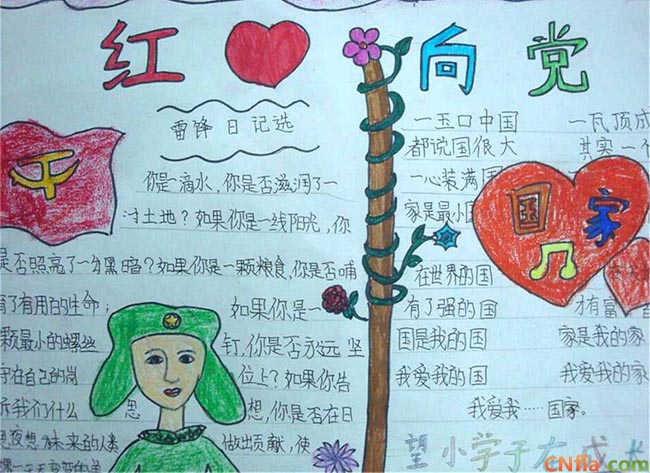 红 向党
雷锋日记选
你是一滴水,你是否滋润了一
寸土地?如果你是一线阳光,你
是否照亮了一分黑暗?如果你是一颗粮食,你是否哺
育了有用的生命;如果你是一
颗最小的螺丝钉,你是否永远坚
守在自己的岗位上?如果你告
诉我们什么思想,你是否在日
夜想为未来的人类做出贡献,使
一玉口中国 一瓦顶成
都说国很大 其实一个
一心装满国
家是最小
国家
在世界的国
有了强的国 才有富
国是我的国 家是我的家
我爱我的国 我爱我的家
我爱我……国家。
望小学子有成
CNfla.com